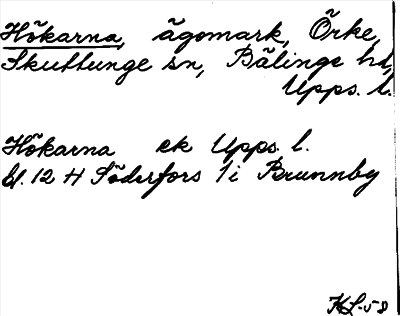 Hökarna, ägomark, Örke,
Skuttunge sn, Bälinge hd,
Upps. l.
Hökarna ek Upps. l.
bl. 12 H Söderfors 1 i Brunnby
KL-58